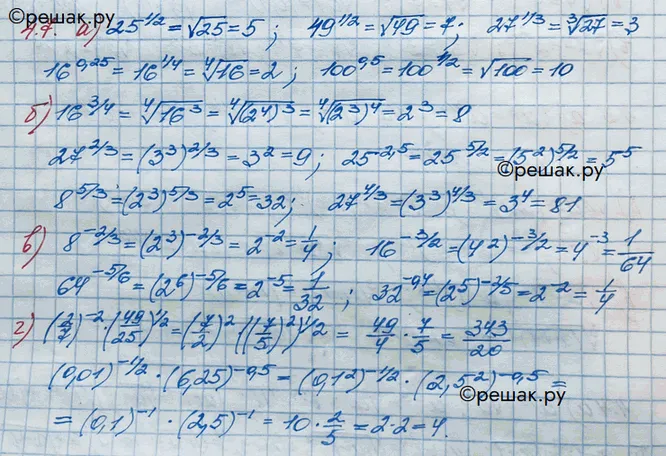 ©решак.ру
4.7. а) 25^{1/2} = √25 = 5; 49^{1/2} = √49 = 7; 27^{1/3} = ∛27 = 3
16^{0,25} = 16^{1/4} = ∜16 = 2; 100^{0,5} = 100^{1/2} = √100 = 10
б) 16^{3/4} = ∜(16^3) = ∜((2^4)^3) = ∜((2^3)^4) = 2^3 = 8
27^{2/3} = (3^3)^{2/3} = 3^2 = 9; 25^{-2,5} = 25^{5/2} = (5^2)^{5/2} = 5^5
©решак.ру
8^{5/3} = (2^3)^{5/3} = 2^5 = 32; 27^{4/3} = (3^3)^{4/3} = 3^4 = 81
в) 8^{-2/3} = (2^3)^{-2/3} = 2^{-2} = 1/4; 16^{-3/2} = (4^2)^{-3/2} = 4^{-3} = 1/64
64^{-5/6} = (2^6)^{-5/6} = 2^{-5} = 1/32; 32^{-0,4} = (2^5)^{-2/5} = 2^{-2} = 1/4
г) (2/7)^{-2} · (49/25)^{1/2} = (7/2)^2 ((7/5)^2)^{1/2} = 49/4 · 7/5 = 343/20
(0,01)^{-1/2} · (6,25)^{-0,5} = (0,1^2)^{-1/2} · (2,5^2)^{-0,5} =
©решак.ру
= (0,1)^{-1} · (2,5)^{-1} = 10 · 2/5 = 2·2 = 4.